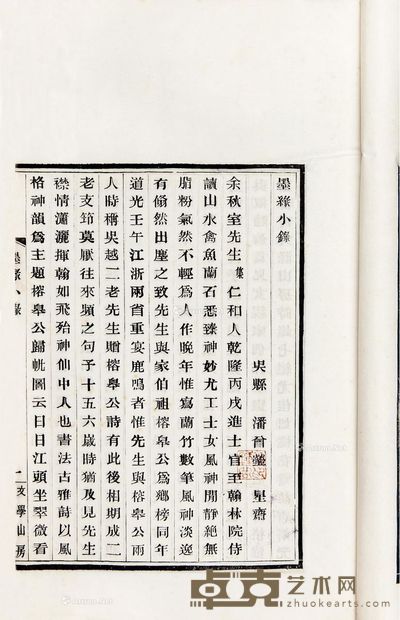 墨緣小錄
吳縣 潘曾瑩 星齋
余秋室先生集仁和人乾隆丙戌進士官至翰林院侍
讀山水禽魚蘭石悉臻神妙尤工士女風神閒靜絕無
脂粉氣然不輕爲人作晚年惟寫蘭竹數筆風神淡逸
有翛然出塵之致先生與家伯祖榕皋公爲鄉榜同年
道光壬午江浙兩省重宴鹿鳴者惟先生與榕皋公兩
人時稱吳越二老先生贈榕皋公詩有此後相期成二
老支筇莫厭往來頻之句予十五六歲時猶及見先生
襟情瀟灑揮翰如飛殆神仙中人也書法古雅詩以風
格神韻爲主題榕皋公歸帆圖云日日江頭坐翠微看
墨緣小錄
一文學山房
卓克艺术网
www.zhuokearts.com